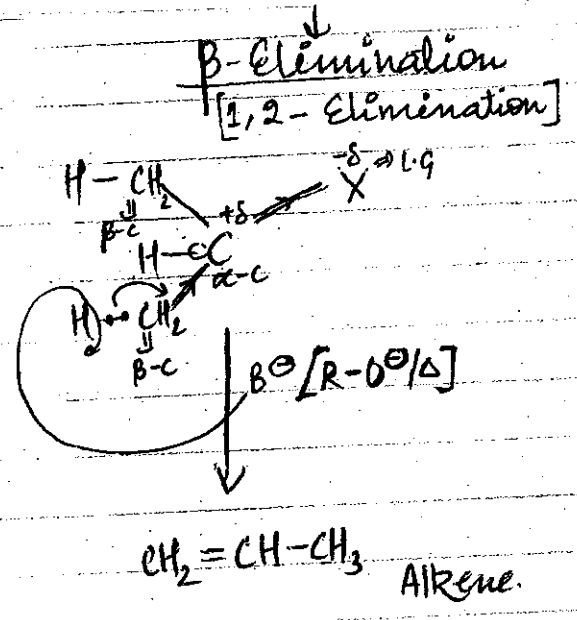 β-Elimination
[1,2- Elimination]
H-CH₂ -δ ⇒ L.G
β-C +δ X
H-C
α-C
H CH₂
β-C
B⊖ [R-O⊖/Δ]
CH₂=CH-CH₃
Alkene.